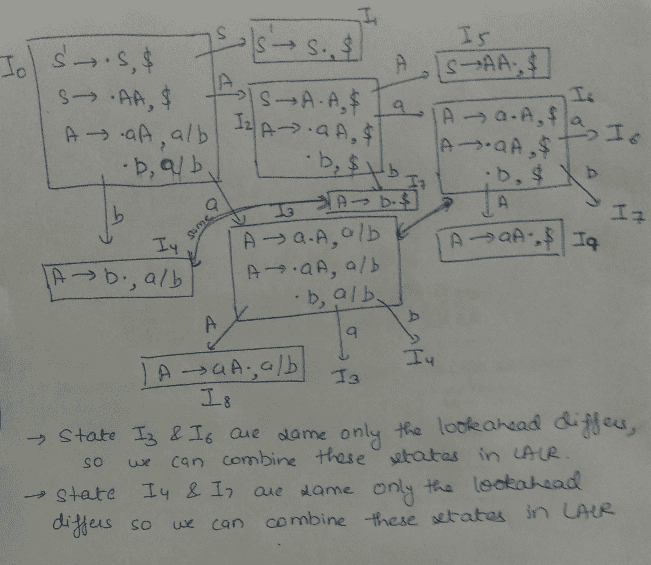 I0
S' → ·S, $
S → ·AA, $
A → ·aA, a/b
·b, a/b
S
I1
S' → S·, $
A
I2
S → A·A, $
A → ·aA, $
·b, $
A
I5
S → AA·, $
a
I6
A → a·A, $
A → ·aA, $
·b, $
a
I6
b
I7
A
A → aA·, $
I9
b
I7
A → b·$
b
I4
A → b·, a/b
same
a
I3
A → a·A, a/b
A → ·aA, a/b
·b, a/b
A
A → aA·, a/b
I8
a
I3
b
I4
→ State I3 & I6 are same only the lookahead differs,
so we can combine these states in LALR.
→ State I4 & I7 are same only the lookahead
differs so we can combine these states in LALR